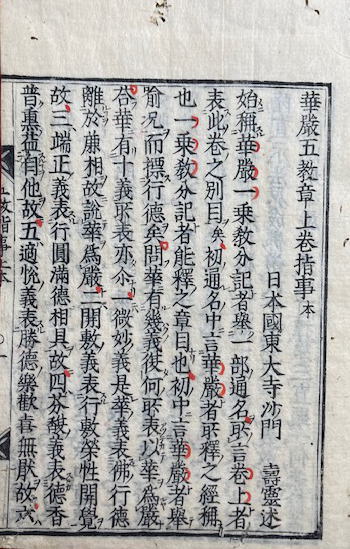 華嚴五教章上卷指事本
日本國東大寺沙門　壽靈述
始稱華嚴一乘教分記者擧一部通名所言卷上者
表此卷之別目矣初通名中言華嚴者所釋之經稱
也一乘教分記者能釋之章目也初中言華嚴者擧
喻況而摽行德矣問華有幾義復何所表以華爲嚴
荅華有十義所表亦尒一微妙義是華義表佛行德
離於麁相故說華爲嚴二開敷義表行敷榮性開覺
故三端正義表行圓滿德相具故四芬馥義表德香
普熏益自他故五適悅義表勝德樂歡喜無厭故六